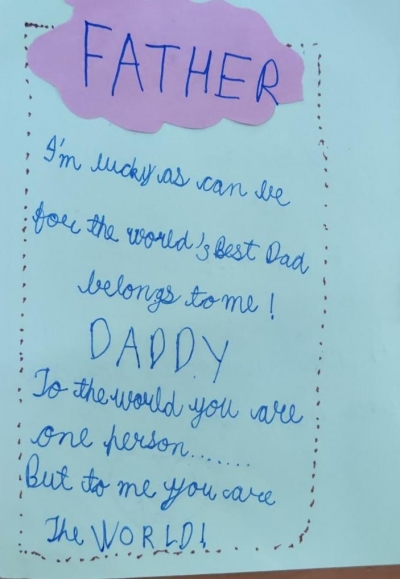 FATHER
I'm lucky as can be
for the world's Best Dad
belongs to me!
DADDY
To the world you are
one person.......
But to me you are
The WORLD!